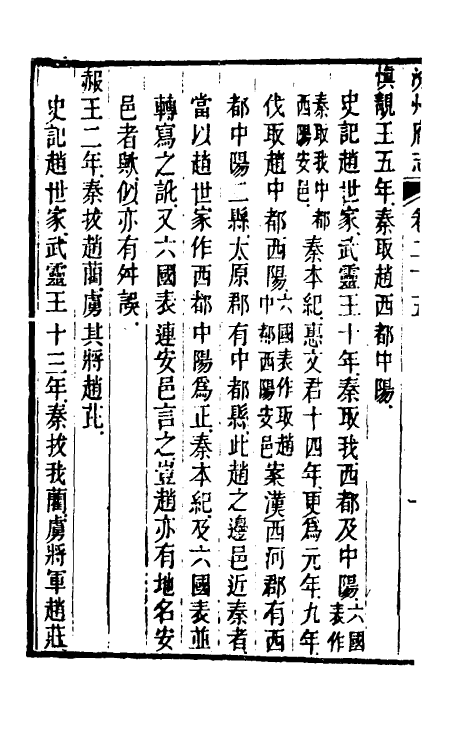 汾州府志 卷二十五
慎靚王五年秦取趙西都中陽
史記趙世家武靈王十年秦取我西都及中陽六國表作
秦取我中都西陽安邑秦本紀惠文君十四年更爲元年九年
伐取趙中都西陽六國表作取趙中都西陽安邑案漢西河郡有西
都中陽二縣太原郡有中都縣此趙之邊邑近秦者
當以趙世家作西都中陽爲正秦本紀及六國表並
轉寫之訛又六國表連安邑言之豈趙亦有地名安
邑者歟似亦有舛誤
赧王二年秦拔趙藺虜其將趙莊
史記趙世家武靈王十三年秦拔我藺虜將軍趙莊